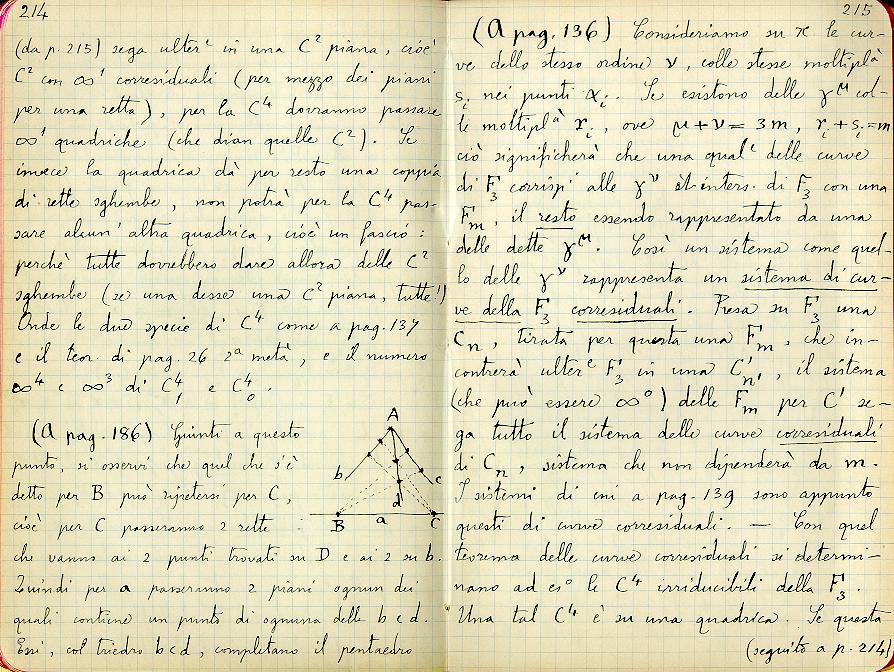 214
(da p. 215) sega ulter^e in una C² piana, cioè
C² con ∞¹ corresiduali (per mezzo dei piani
per una retta), per la C⁴ dovranno passare
∞¹ quadriche (che dian quelle C²). Se
invece la quadrica dà per resto una coppia
di rette sghembe, non potrà per la C⁴ pas-
sare alcun' altra quadrica, cioè un fascio:
perchè tutte dovrebbero dare allora delle C²
sghembe (se una desse una C² piana, tutte!)
Onde le due specie di C⁴ come a pag. 137
e il teor. di pag. 26 2ª metà, e il numero
∞⁴ e ∞³ di C⁴₁ e C⁴₀.
(A pag. 186) Giunti a questo
punto, si osservi che quel che s'è
detto per B può ripetersi per C,
cioè per C passeranno 2 rette
che vanno ai 2 punti trovati su D e ai 2 su b.
Quindi per a passeranno 2 piani ognun dei
quali contiene un punto di ognuna delle b c d.
Essi, col triedro b c d, completano il pentaedro
A
b
c
d
B
a
C
215
(A pag. 136) Consideriamo su π le cur-
ve dello stesso ordine ν, colle stesse moltipl^à
s_i nei punti α_i. Se esistono delle γ^μ col-
le moltipl^à r_i, ove μ+ν = 3m, r_i + s_i = m
ciò significherà che una qual^e delle curve
di F₃ corrisp^i alle γ^ν è inters. di F₃ con una
F_m, il resto essendo rappresentato da una
delle dette γ^μ. Così un sistema come quel-
lo delle γ^ν rappresenta un sistema di cur-
ve della F₃ corresiduali. Presa su F₃ una
C_n, tirata per questa una F_m, che in-
contrerà ulter^e F₃ in una C'_n', il sistema
(che può essere ∞⁰) delle F_m per C' se-
ga tutto il sistema delle curve corresiduali
di C_n, sistema che non dipenderà da m.
I sistemi di cui a pag. 139 sono appunto
questi di curve corresiduali. — Con quel
teorema delle curve corresiduali si determi-
nano ad es° le C⁴ irriducibili della F₃.
Una tal C⁴ è su una quadrica. Se questa
(seguito a p. 214)